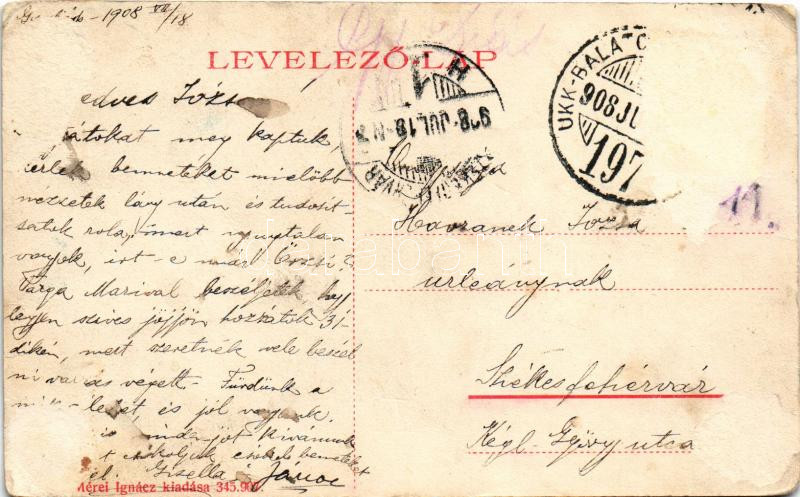 1908 VII/18
LEVELEZŐ-LAP
edves Józsa!
átokat meg kaptuk,
kérlek benneteket mielőbb
nézzetek lány után és tudósit-
satok róla, mert nyugtalan
vagyok, irt-e már Őrzsi?
Varga Marival beszéljetek hogy
legyen szives jöjjön hozzátok 31-
dikén, mert szeretnék vele beszél
ni varrás végett. Fürdünk a
lehet, és jól vagyunk.
is minden jót kivánunk
csókoljuk benneteket
Gisella János
Mérei Ignácz kiadása 345.907.
UKK-BALATO
908 JU
197
908 JUL 18
Havranek Józsa
urleánynak
Székesfehérvár
Kégl-György utca
11.